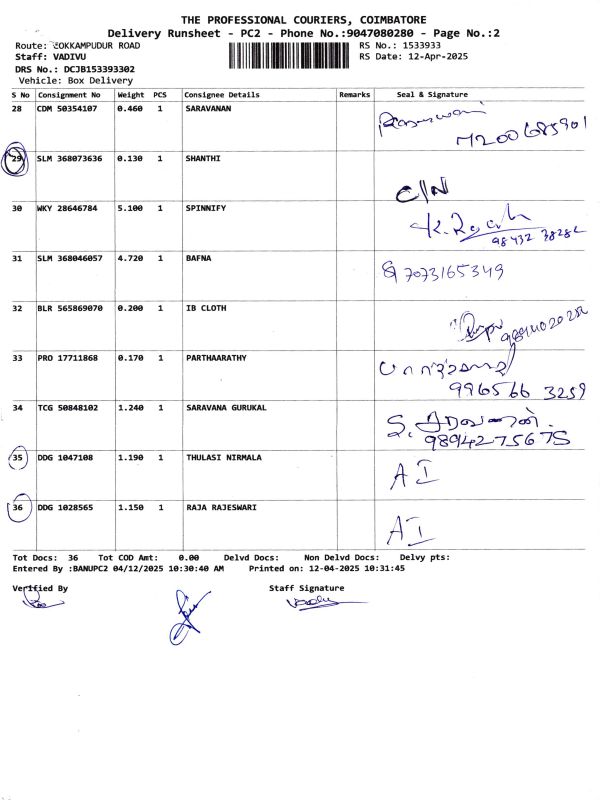 THE PROFESSIONAL COURIERS, COIMBATORE
Delivery Runsheet - PC2 - Phone No.:9047080280 - Page No.:2
Route: COKKAMPUDUR ROAD RS No.: 1533933
Staff: VADIVU RS Date: 12-Apr-2025
DRS No.: DCJB153393302
Vehicle: Box Delivery
S No Consignment No Weight PCS Consignee Details Remarks Seal & Signature
28 CDM 50354107 0.460 1 SARAVANAN
29 SLM 368073636 0.130 1 SHANTHI
C/N
30 WKY 28646784 5.100 1 SPINNIFY
98432 38282
31 SLM 368046057 4.720 1 BAFNA
7073165349
32 BLR 565869070 0.200 1 IB CLOTH
33 PRO 17711868 0.170 1 PARTHAARATHY
996566 3259
34 TCG 50848102 1.240 1 SARAVANA GURUKAL
S. சரவணன்.
9894275675
35 DDG 1047108 1.190 1 THULASI NIRMALA
AI
36 DDG 1028565 1.150 1 RAJA RAJESWARI
AI
Tot Docs: 36 Tot COD Amt: 0.00 Delvd Docs: Non Delvd Docs: Delvy pts:
Entered By :BANUPC2 04/12/2025 10:30:40 AM Printed on: 12-04-2025 10:31:45
Verified By Staff Signature